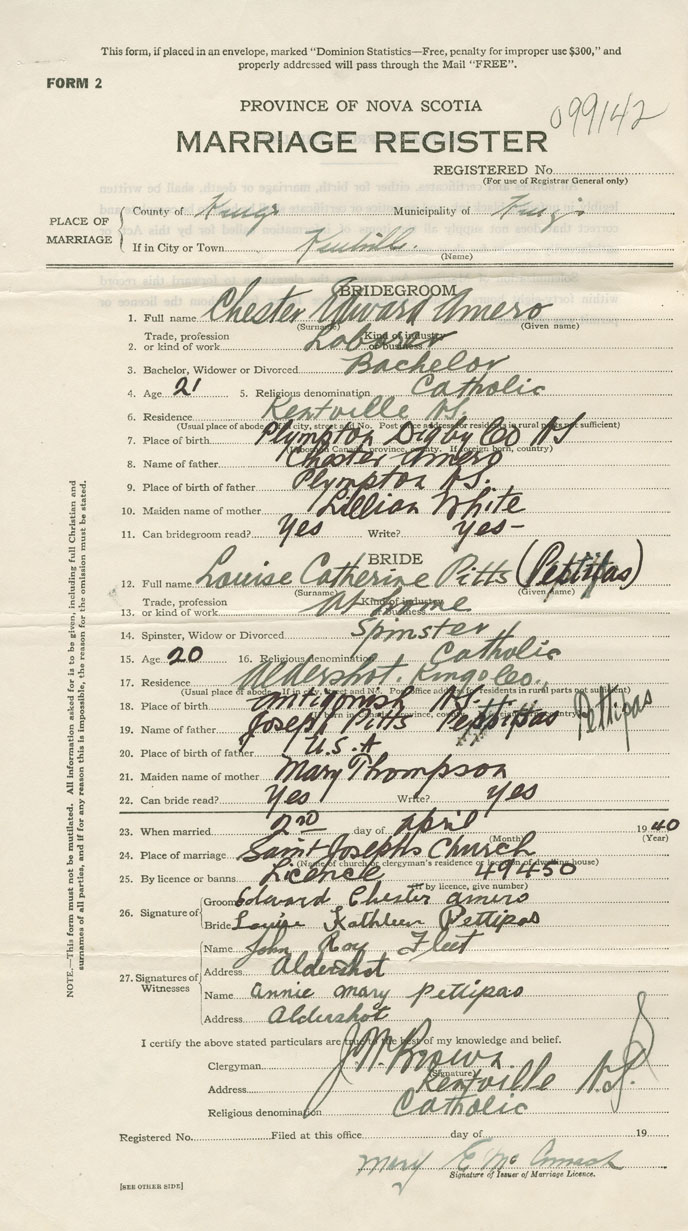 This form, if placed in an envelope, marked "Dominion Statistics—Free, penalty for improper use $300," and
properly addressed will pass through the Mail "FREE".
FORM 2
PROVINCE OF NOVA SCOTIA
099142
MARRIAGE REGISTER
REGISTERED No.
(For use of Registrar General only)
PLACE OF MARRIAGE
County of Kings Municipality of Kings
If in City or Town Kentville.
(Name)
BRIDEGROOM
1. Full name Chester Edward Amero
(Surname) (Given name)
2. Trade, profession or kind of work Laborer Kind of industry or business
3. Bachelor, Widower or Divorced Bachelor
4. Age 21 5. Religious denomination Catholic
6. Residence Kentville N.S.
(Usual place of abode. If in city, street and No. Post office address for residents in rural parts not sufficient)
7. Place of birth Plympton Digby Co NS
(If born in Canada, province, county. If foreign born, country)
8. Name of father Chester Amero
9. Place of birth of father Plympton N.S.
10. Maiden name of mother Lillian White
11. Can bridegroom read? Yes Write? yes-
BRIDE
12. Full name Louise Catherine Pitts (Pettipas)
(Surname) (Given name)
13. Trade, profession or kind of work At Home Kind of industry or business
14. Spinster, Widow or Divorced Spinster
15. Age 20 16. Religious denomination Catholic
17. Residence Aldershot. Kings Co.,
(Usual place of abode. If in city, street and No. Post office address for residents in rural parts not sufficient)
18. Place of birth Antigonish N.S.
19. Name of father Joseph Pitts Pettipas Pettipas
20. Place of birth of father U.S.A
21. Maiden name of mother Mary Thompson
22. Can bride read? Yes Write? yes
23. When married 2nd day of April 1940
(Month) (Year)
24. Place of marriage Saint Josephs Church
(Name of church or clergyman's residence or location of dwelling house)
25. By licence or banns Licence 49450
(If by licence, give number)
26. Signature of
Groom Edward Chester Amero
Bride Louise Kathleen Pettipas
27. Signatures of Witnesses
Name John Roy Fleet
Address Aldershot
Name Annie Mary Pettipas
Address Aldershot
I certify the above stated particulars are true to the best of my knowledge and belief.
Clergyman J. W. Brown.
(Signature)
Address Kentville N.S.
Religious denomination Catholic
Registered No. Filed at this office day of 19
Mary E Mc
Signature of Issuer of Marriage Licence.
[SEE OTHER SIDE]
NOTE.—This form must not be mutilated. All information asked for is to be given, including full Christian and
surnames of all parties, and if for any reason this is impossible, the reason for the omission must be stated.